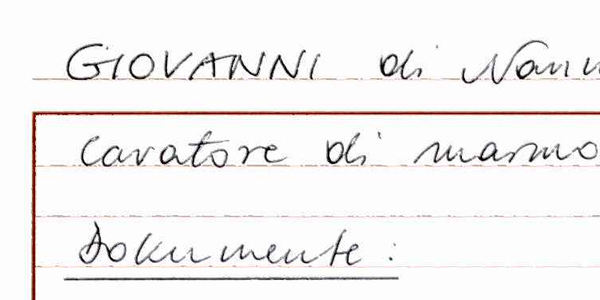 GIOVANNI di Nann
cavatore di marmo
Dokumente: